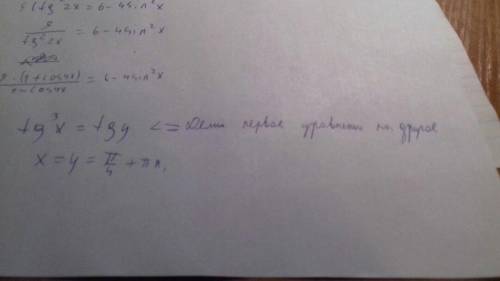 ctg² 2x = 6 - 4sin²x
/ tg² 2x = 6 - 4sin²x
(1+cos4x) / 1-cos4x = 6 - 4sin²x
tg³x = tgy <= Делим первое уравнение на другое
x = y = π/4 + πn,